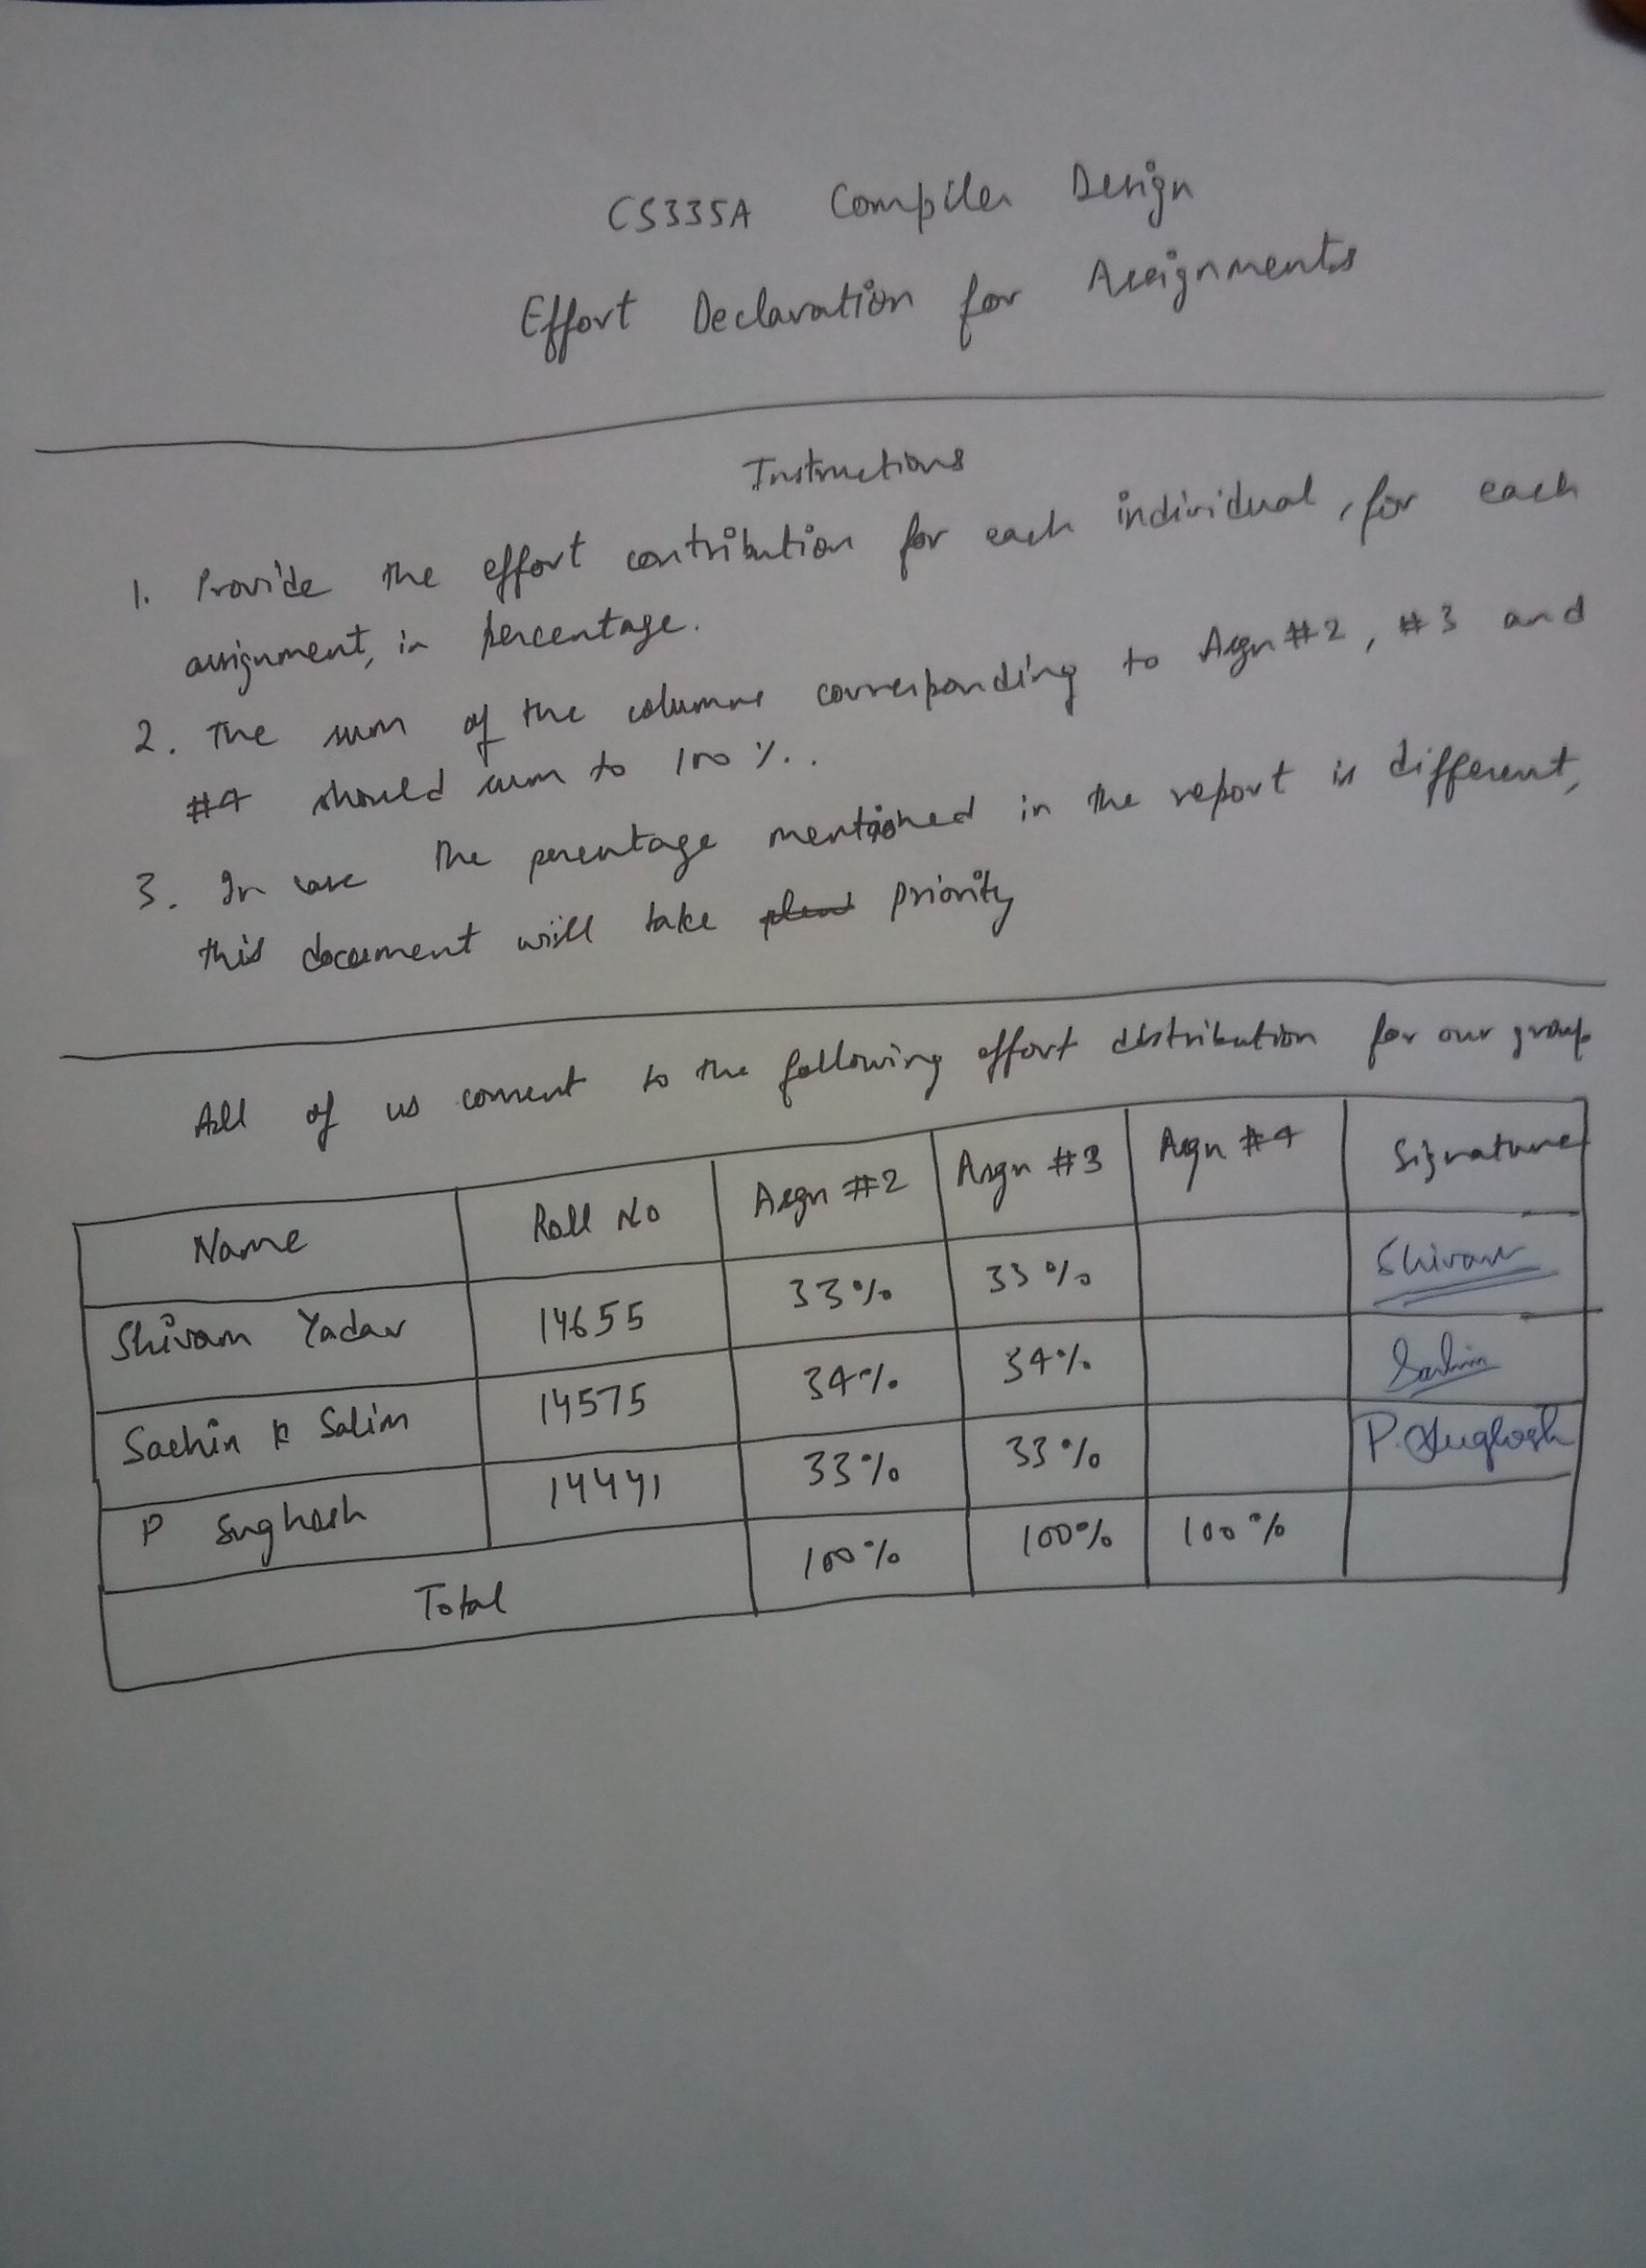 CS335A Compiler Design
Effort Declaration for Assignments
Instructions
1. Provide the effort contribution for each individual, for each
assignment, in percentage.
2. The sum of the columns corresponding to Asgn #2, #3 and
#4 should sum to 100%.
3. In case the percentage mentioned in the report is different,
this document will take priority
All of us consent to the following effort distribution for our group
Name Roll No Asgn #2 Asgn #3 Asgn #4 Signature
Shivam Yadav 14655 33% 33% Shivam
Sachin K Salim 14575 34% 34% Sachin
P Sughosh 14441 33% 33% P. Sughosh
Total 100% 100% 100%